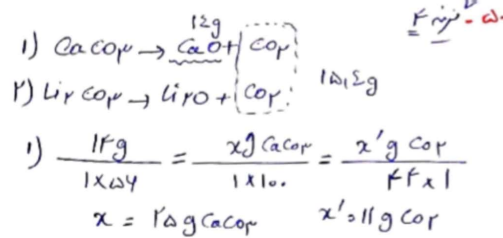 گزینه ۴ - ۵۰
۱۴g
۱) CaCO۳ → CaO + CO۲
۲) Li۲CO۳ → Li۲O + CO۲
۱۵,۴g
۱) ۱۴g / ۱×۵۶ = xg CaCO۳ / ۱×۱۰۰ = x'g CO۲ / ۴۴×۱
x = ۲۵g CaCO۳ x' = ۱۱g CO۲